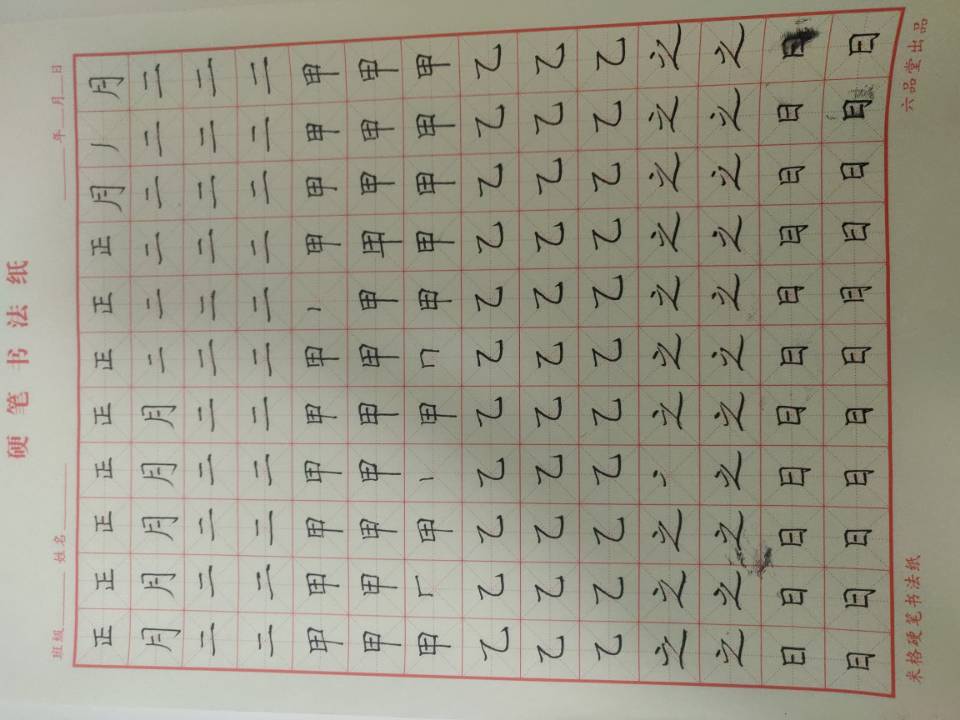 硬笔书法纸
班级 姓名 年 月 日
正 正 正 正 正 正 正 正 月 丿 月
月 月 月 月 月 二 二 二 二 二 二
二 二 二 二 二 二 二 二 二 二 二
二 二 二 二 二 二 二 二 二 二 二
甲 甲 甲 甲 甲 甲 丨 甲 甲 甲 甲
甲 甲 甲 甲 甲 甲 甲 甲 甲 甲 甲
甲 甲 甲 甲 甲 甲 甲 甲
乙 乙 乙 乙 乙 乙 乙 乙 乙 乙 乙
乙 乙 乙 乙 乙 乙 乙 乙 乙 乙 乙
乙 乙 乙 乙 乙 乙 乙 乙 乙 乙 乙
之 之 之 之 之 之 之 之 之 之
之 之 之 之 之 之 之 之 之 之 之
日 日 日 日 日 日 日 日 日 日 日
日 日 日 日 日 日 日 日 日 日 日
米格硬笔书法纸 六品堂出品